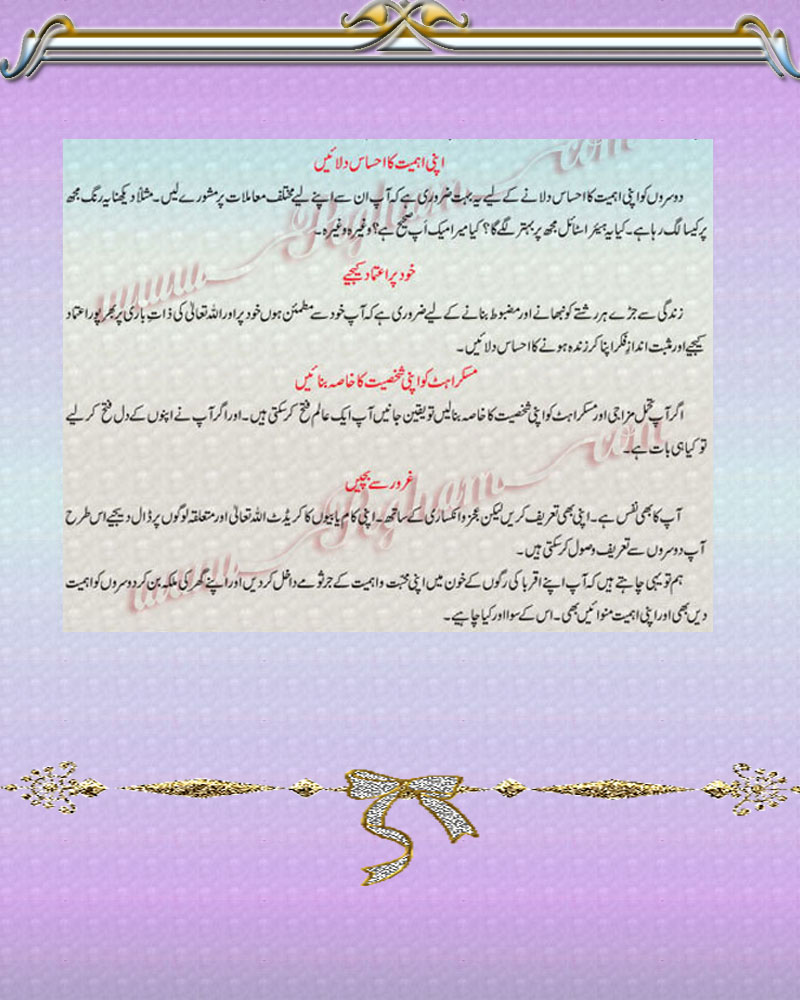 اپنی اہمیت کا احساس دلائیں
دوسروں کو اپنی اہمیت کا احساس دلانے کے لیے یہ بہت ضروری ہے کہ آپ ان سے اپنے لیے مختلف معاملات پر مشورے لیں۔ مثلاً دیکھنا یہ رنگ مجھ
پر کیسا لگ رہا ہے۔ کیا یہ ہیئر اسٹائل مجھ پر بہتر لگے گا؟ کیا میرا میک اَپ صحیح ہے؟ وغیرہ وغیرہ۔
خود پر اعتماد کیجیے
زندگی سے جڑے ہر رشتے کو نبھانے اور مضبوط بنانے کے لیے ضروری ہے کہ آپ خود سے مطمئن ہوں خود پر اور اللہ تعالیٰ کی ذاتِ باری پر بھرپور اعتماد
کیجیے اور مثبت اندازِ فکر اپنا کر زندہ ہونے کا احساس دلائیں۔
مسکراہٹ کو اپنی شخصیت کا خاصہ بنائیں
اگر آپ تحمل مزاجی اور مسکراہٹ کو اپنی شخصیت کا خاصہ بنالیں تو یقین جانیں آپ ایک عالم فتح کرسکتی ہیں۔ اور اگر آپ نے اپنوں کے دل فتح کر لیے
تو کیا ہی بات ہے۔
غرور سے بچیں
آپ کا بھی نفس ہے۔ اپنی بھی تعریف کریں لیکن عجز و انکساری کے ساتھ۔ اپنی کام یابیوں کا کریڈٹ اللہ تعالیٰ اور متعلقہ لوگوں پر ڈال دیجیے اس طرح
آپ دوسروں سے تعریف وصول کرسکتی ہیں۔
ہم تو یہی چاہتے ہیں کہ آپ اپنے اقربا کی رگوں کے خون میں اپنی محبت و اہمیت کے جرثومے داخل کردیں اور اپنے گھر کی ملکہ بن کر دوسروں کو اہمیت
دیں بھی اور اپنی اہمیت منوائیں بھی۔ اس کے سوا اور کیا چاہیے۔
www.Pegham.com
www.Pegham.com